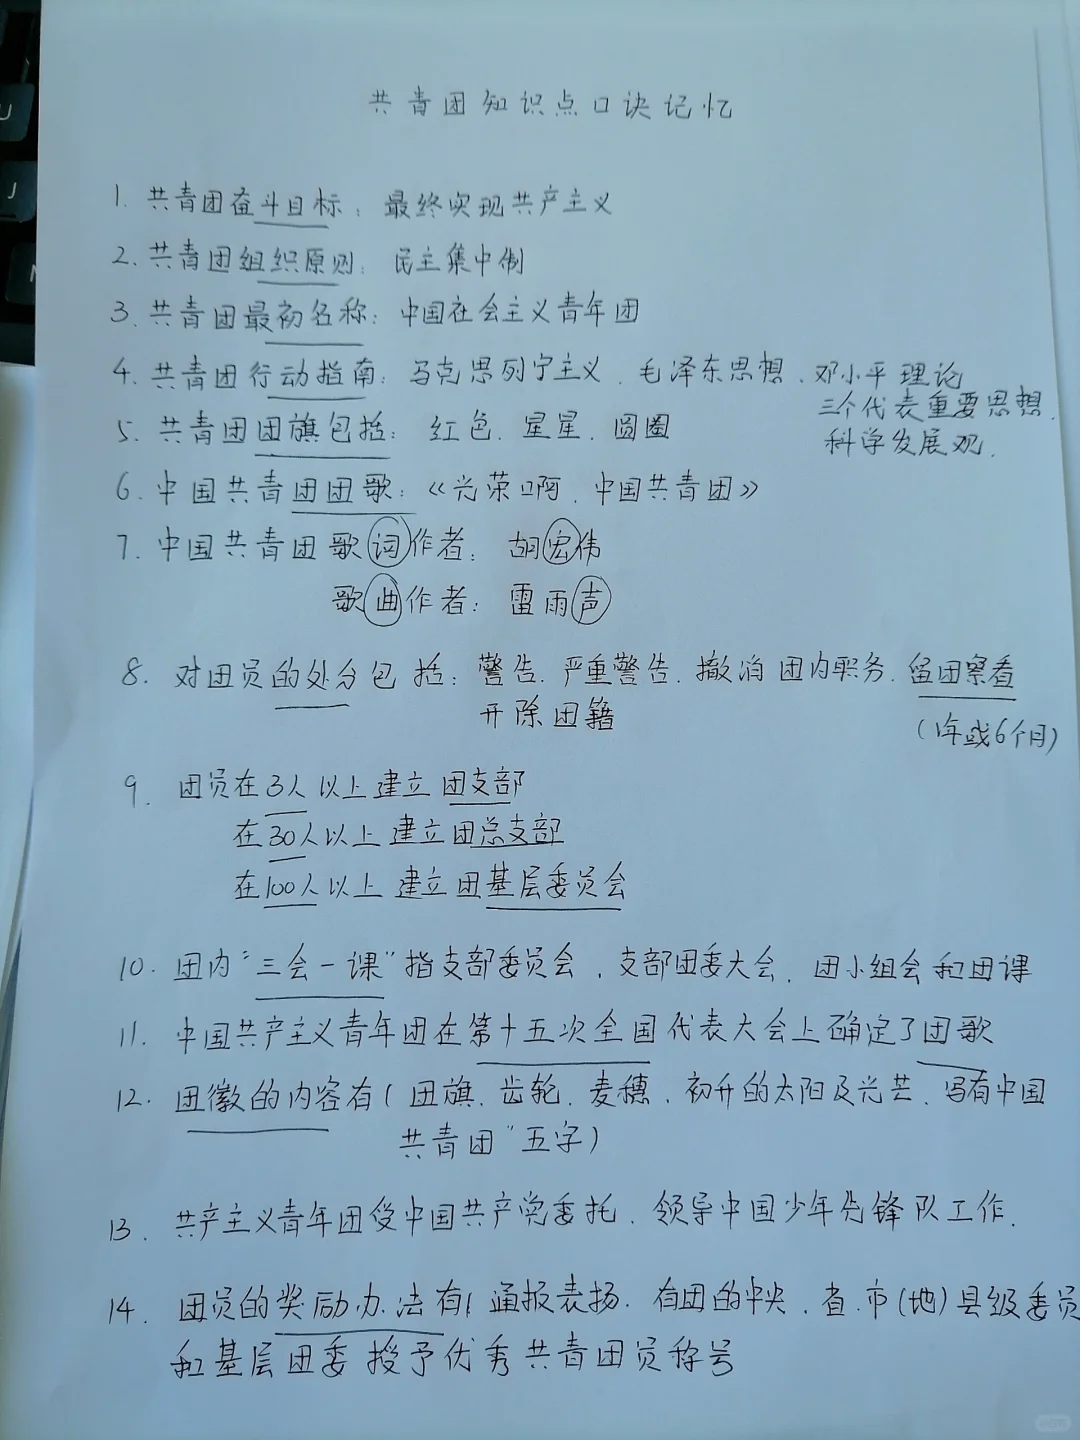 共青团知识点口诀记忆
1. 共青团奋斗目标：最终实现共产主义
2. 共青团组织原则：民主集中制
3. 共青团最初名称：中国社会主义青年团
4. 共青团行动指南：马克思列宁主义、毛泽东思想、邓小平理论
三个代表重要思想、
科学发展观.
5. 共青团团旗包括：红色、星星、圆圈
6. 中国共青团团歌：《光荣啊，中国共青团》
7. 中国共青团歌词作者：胡宏伟
歌曲作者：雷雨声
8. 对团员的处分包括：警告、严重警告、撤消团内职务、留团察看
开除团籍
（1年或6个月）
9. 团员在3人以上建立团支部
在30人以上建立团总支部
在100人以上建立团基层委员会
10. 团内“三会一课”指支部委员会、支部团委大会、团小组会和团课
11. 中国共产主义青年团在第十五次全国代表大会上确定了团歌
12. 团徽的内容有（团旗、齿轮、麦穗、初升的太阳及光芒、写有中国
共青团”五字）
13. 共产主义青年团受中国共产党委托、领导中国少年先锋队工作.
14. 团员的奖励办法有（通报表扬、有团的中央、省、市（地）县级委员
和基层团委授予优秀共青团员称号